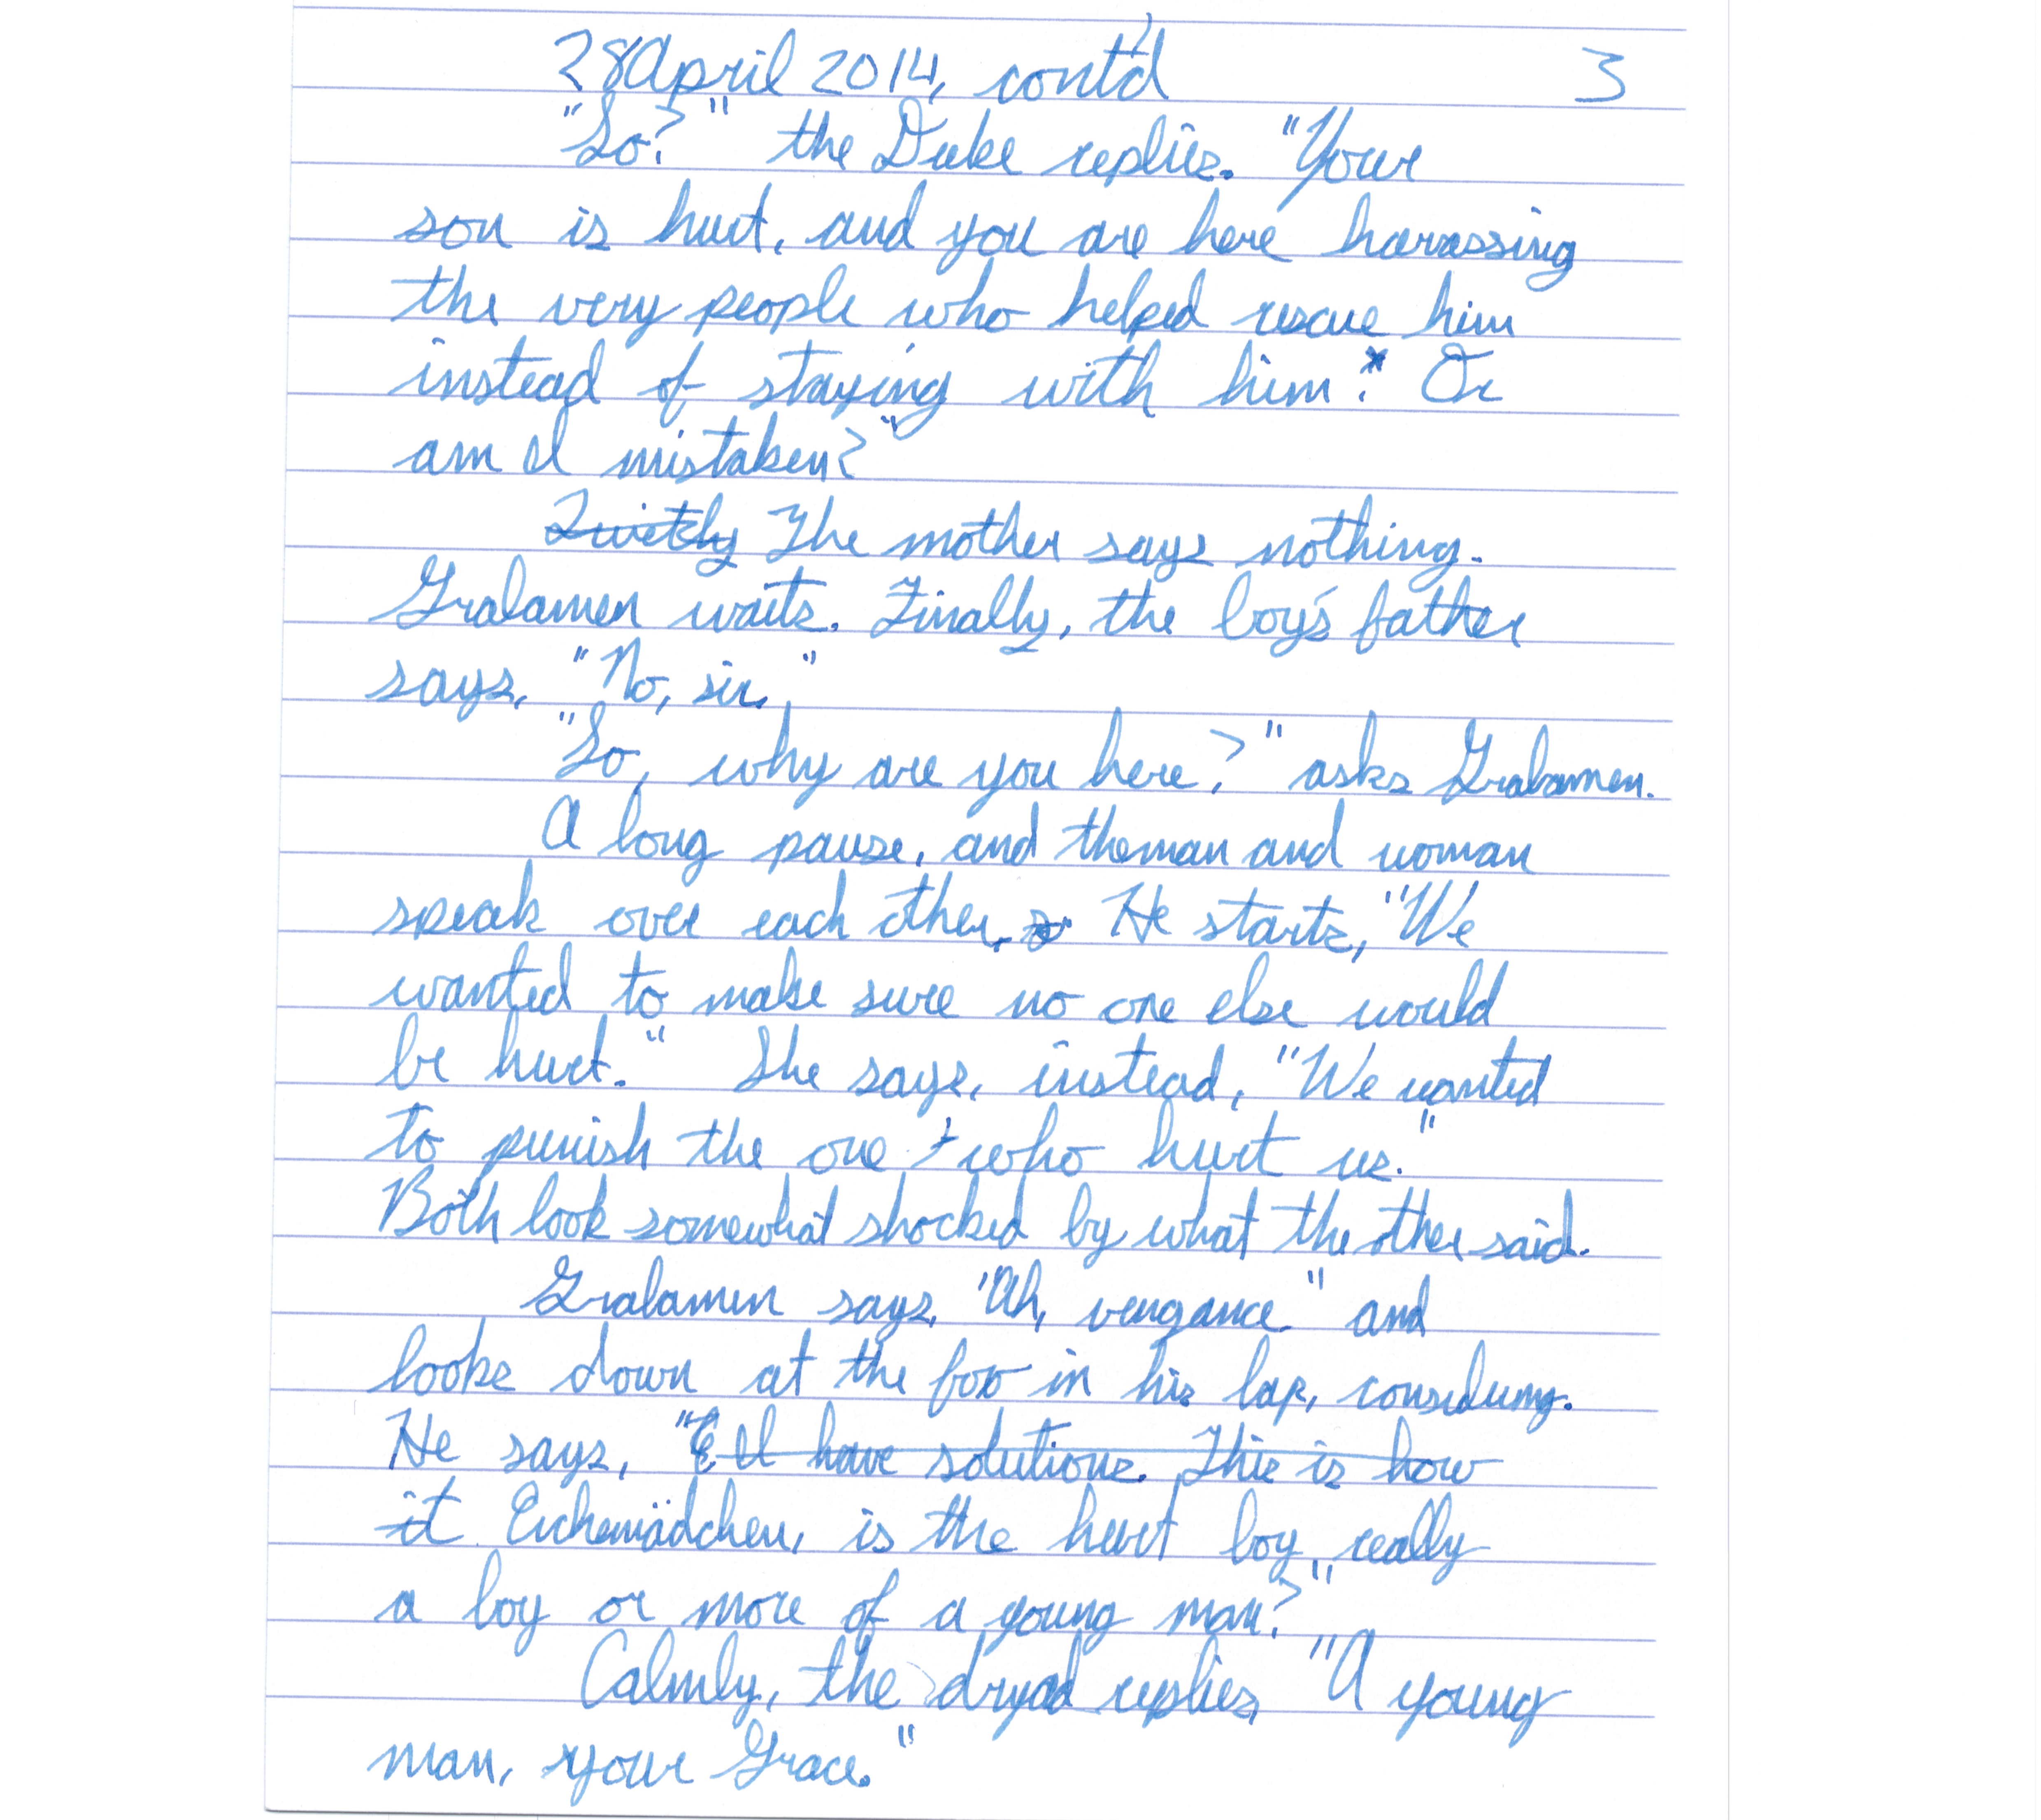 28 April 2014, cont'd 3
"So?" the Duke replies. "Your
son is hurt, and you are here harassing
the very people who helped rescue him
instead of staying with him? Or
am I mistaken?"
Quietly The mother says nothing.
Gralamen waits. Finally, the boy's father
says, "No, sir."
"So, why are you here?" asks Gralamen.
A long pause, and the man and woman
speak over each other. He starts, "We
wanted to make sure no one else would
be hurt." She says, instead, "We wanted
to punish the one who hurt us."
Both look somewhat shocked by what the other said.
Gralamen says, "Ah, vengance" and
looks down at the fox in his lap, considering.
He says, "E I have solutions. This is how
it Eichemädchen, is the hurt boy really
a boy or more of a young man?"
Calmly, the dryad replies, "A young
man, your Grace."